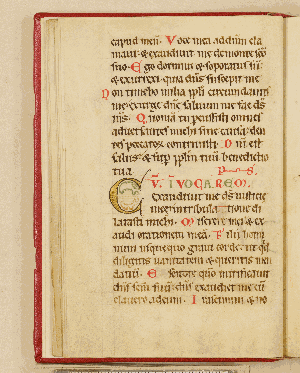 caput meū. Voce mea ad dnm cla
maui: & exaudiuit me de monte sco
suo. Ego dormiui & soporatus sū:
& exurrexi quia dns suscepit me
Non timebo milia ppli circundantis
me: exurge dne saluum me fac ds
ms. Qnoniā tu pcussisti omnes
aduersantes michi sine causa: den
tes peccatoꝝ contriuisti. Dni est
salus: & sup pplm tuū benedictio
tua.
CV̄ IVOCAREM
exaudiuit me ds iusticie
mee: in tribulatione di
latasti michi. Miserere mei & ex
audi orationem meā. Filii homi
num usquequo graui corde: ut qd
diligitis uanitatem & queritis men
daciū. Et scitote qm̄ mirificauit
dns scm̄ suū: dns exaudiet me cū
clamauero ad eum. Irascimini & no